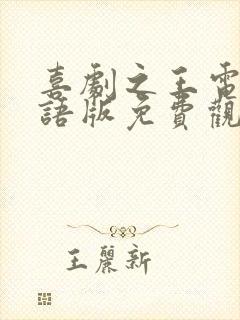 喜劇之王電
語版免費觀
王麗新